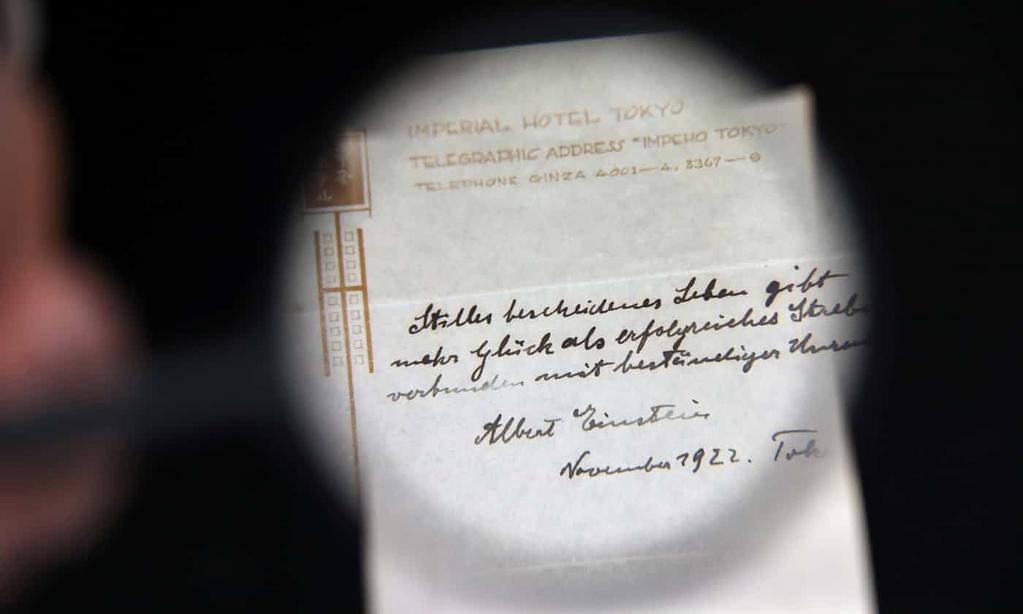 IMPERIAL HOTEL TOKYO
TELEGRAPHIC ADDRESS "IMPEHO TOKYO"
TELEPHONE GINZA 4001—4, 3367—9
Stilles bescheidenes Leben gibt
mehr Glück als erfolgreiches Strebe
verbunden mit beständiger
Albert Einstein
November 1922. Tok